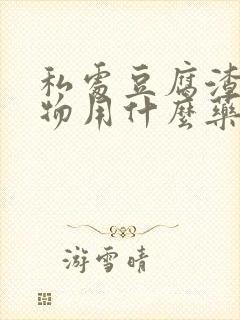 私處豆腐渣
物用什麼藥
游雪晴